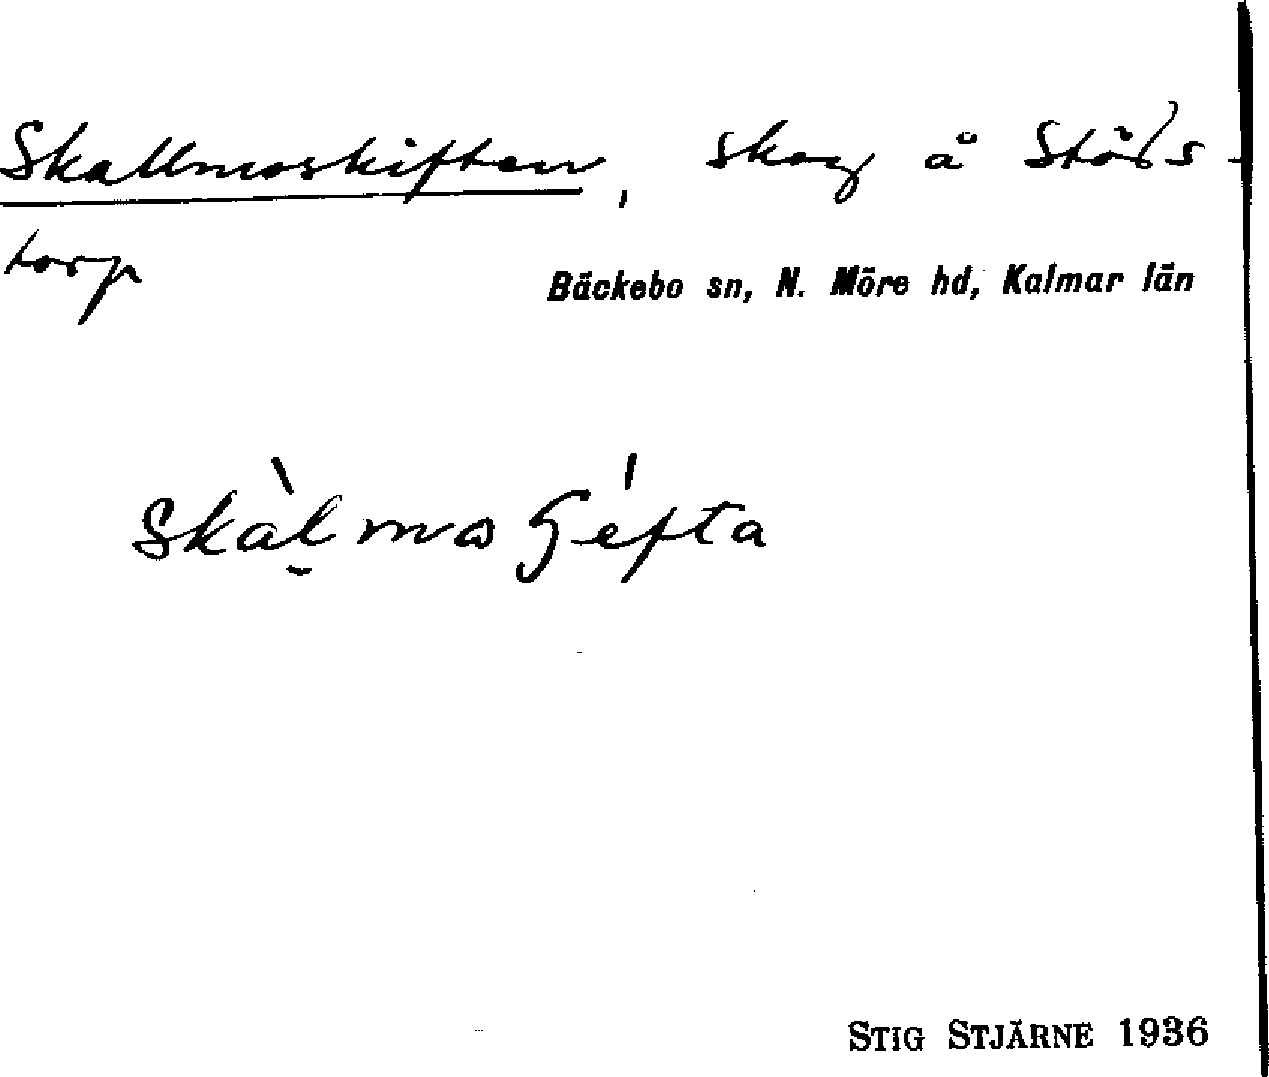 Skallmoskiften, skog å Stöds-
torp
Bäckebo sn, N. Möre hd, Kalmar län
STIG STJÄRNE 1936